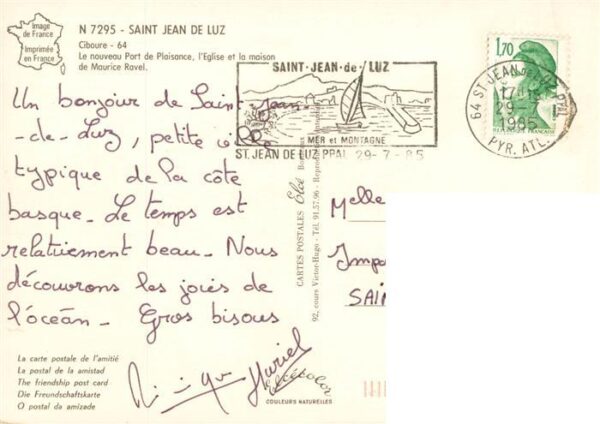 Image
de France
Imprimée
en France
N 7295 - SAINT JEAN DE LUZ
Ciboure - 64
Le nouveau Port de Plaisance, l'Eglise et la maison
de Maurice Ravel.
SAINT-JEAN-de-LUZ
MER et MONTAGNE
ST. JEAN DE LUZ PPAL 29-7-85
1,70
REPUBLIQUE FRANÇAISE
64 ST JEAN DE LUZ PPAL
17H
29-7
1985
PYR. ATL.
Un bonjour de Saint-Jean
-de-Luz, petite ville
typique de la côte
basque. Le temps est
relativement beau. Nous
découvrons les joies de
l'océan. Gros bisous
Muriel
Melle
Impa
SAIN
CARTES POSTALES Elcé
92, cours Victor-Hugo - Tél. 91.57.96 - Reproduction
La carte postale de l'amitié
La postal de la amistad
The friendship post card
Die Freundschaftskarte
O postal da amizade
Elcécolor
COULEURS NATURELLES